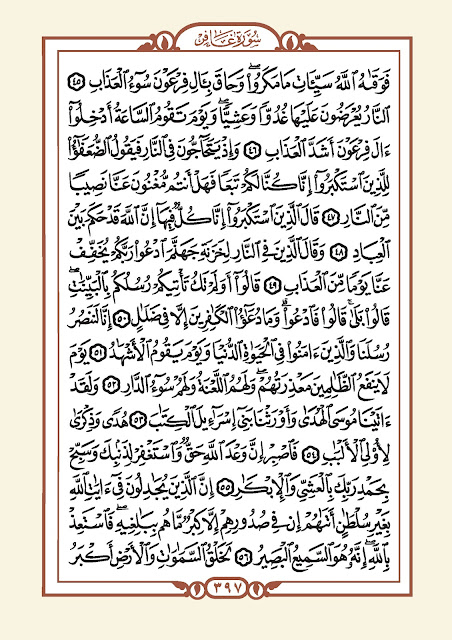 سُورَةُ غَافِرٍ
فَوَقَىٰهُ ٱللَّهُ سَيِّـَٔاتِ مَا مَكَرُوا۟ ۖ وَحَاقَ بِـَٔالِ فِرْعَوْنَ سُوٓءُ ٱلْعَذَابِ ٤٥
ٱلنَّارُ يُعْرَضُونَ عَلَيْهَا غُدُوًّا وَعَشِيًّا ۖ وَيَوْمَ تَقُومُ ٱلسَّاعَةُ أَدْخِلُوٓا۟
ءَالَ فِرْعَوْنَ أَشَدَّ ٱلْعَذَابِ ٤٦ وَإِذْ يَتَحَآجُّونَ فِى ٱلنَّارِ فَيَقُولُ ٱلضُّعَفَـٰٓؤُا۟
لِلَّذِينَ ٱسْتَكْبَرُوٓا۟ إِنَّا كُنَّا لَكُمْ تَبَعًا فَهَلْ أَنتُم مُّغْنُونَ عَنَّا نَصِيبًا
مِّنَ ٱلنَّارِ ٤٧ قَالَ ٱلَّذِينَ ٱسْتَكْبَرُوٓا۟ إِنَّا كُلٌّ فِيهَآ إِنَّ ٱللَّهَ قَدْ حَكَمَ بَيْنَ
ٱلْعِبَادِ ٤٨ وَقَالَ ٱلَّذِينَ فِى ٱلنَّارِ لِخَزَنَةِ جَهَنَّمَ ٱدْعُوا۟ رَبَّكُمْ يُخَفِّفْ
عَنَّا يَوْمًا مِّنَ ٱلْعَذَابِ ٤٩ قَالُوٓا۟ أَوَلَمْ تَكُ تَأْتِيكُمْ رُسُلُكُم بِٱلْبَيِّنَـٰتِ ۖ
قَالُوا۟ بَلَىٰ ۚ قَالُوا۟ فَٱدْعُوا۟ ۗ وَمَا دُعَـٰٓؤُا۟ ٱلْكَـٰفِرِينَ إِلَّا فِى ضَلَـٰلٍ ٥٠ إِنَّا لَنَنصُرُ
رُسُلَنَا وَٱلَّذِينَ ءَامَنُوا۟ فِى ٱلْحَيَوٰةِ ٱلدُّنْيَا وَيَوْمَ يَقُومُ ٱلْأَشْهَـٰدُ ٥١ يَوْمَ
لَا يَنفَعُ ٱلظَّـٰلِمِينَ مَعْذِرَتُهُمْ ۖ وَلَهُمُ ٱللَّعْنَةُ وَلَهُمْ سُوٓءُ ٱلدَّارِ ٥٢ وَلَقَدْ
ءَاتَيْنَا مُوسَى ٱلْهُدَىٰ وَأَوْرَثْنَا بَنِىٓ إِسْرَٰٓءِيلَ ٱلْكِتَـٰبَ ٥٣ هُدًى وَذِكْرَىٰ
لِأُو۟لِى ٱلْأَلْبَـٰبِ ٥٤ فَٱصْبِرْ إِنَّ وَعْدَ ٱللَّهِ حَقٌّ وَٱسْتَغْفِرْ لِذَنۢبِكَ وَسَبِّحْ
بِحَمْدِ رَبِّكَ بِٱلْعَشِىِّ وَٱلْإِبْكَـٰرِ ٥٥ إِنَّ ٱلَّذِينَ يُجَـٰدِلُونَ فِىٓ ءَايَـٰتِ ٱللَّهِ
بِغَيْرِ سُلْطَـٰنٍ أَتَىٰهُمْ ۙ إِن فِى صُدُورِهِمْ إِلَّا كِبْرٌ مَّا هُم بِبَـٰلِغِيهِ ۚ فَٱسْتَعِذْ
بِٱللَّهِ ۖ إِنَّهُۥ هُوَ ٱلسَّمِيعُ ٱلْبَصِيرُ ٥٦ لَخَلْقُ ٱلسَّمَـٰوَٰتِ وَٱلْأَرْضِ أَكْبَرُ
٣٩٧